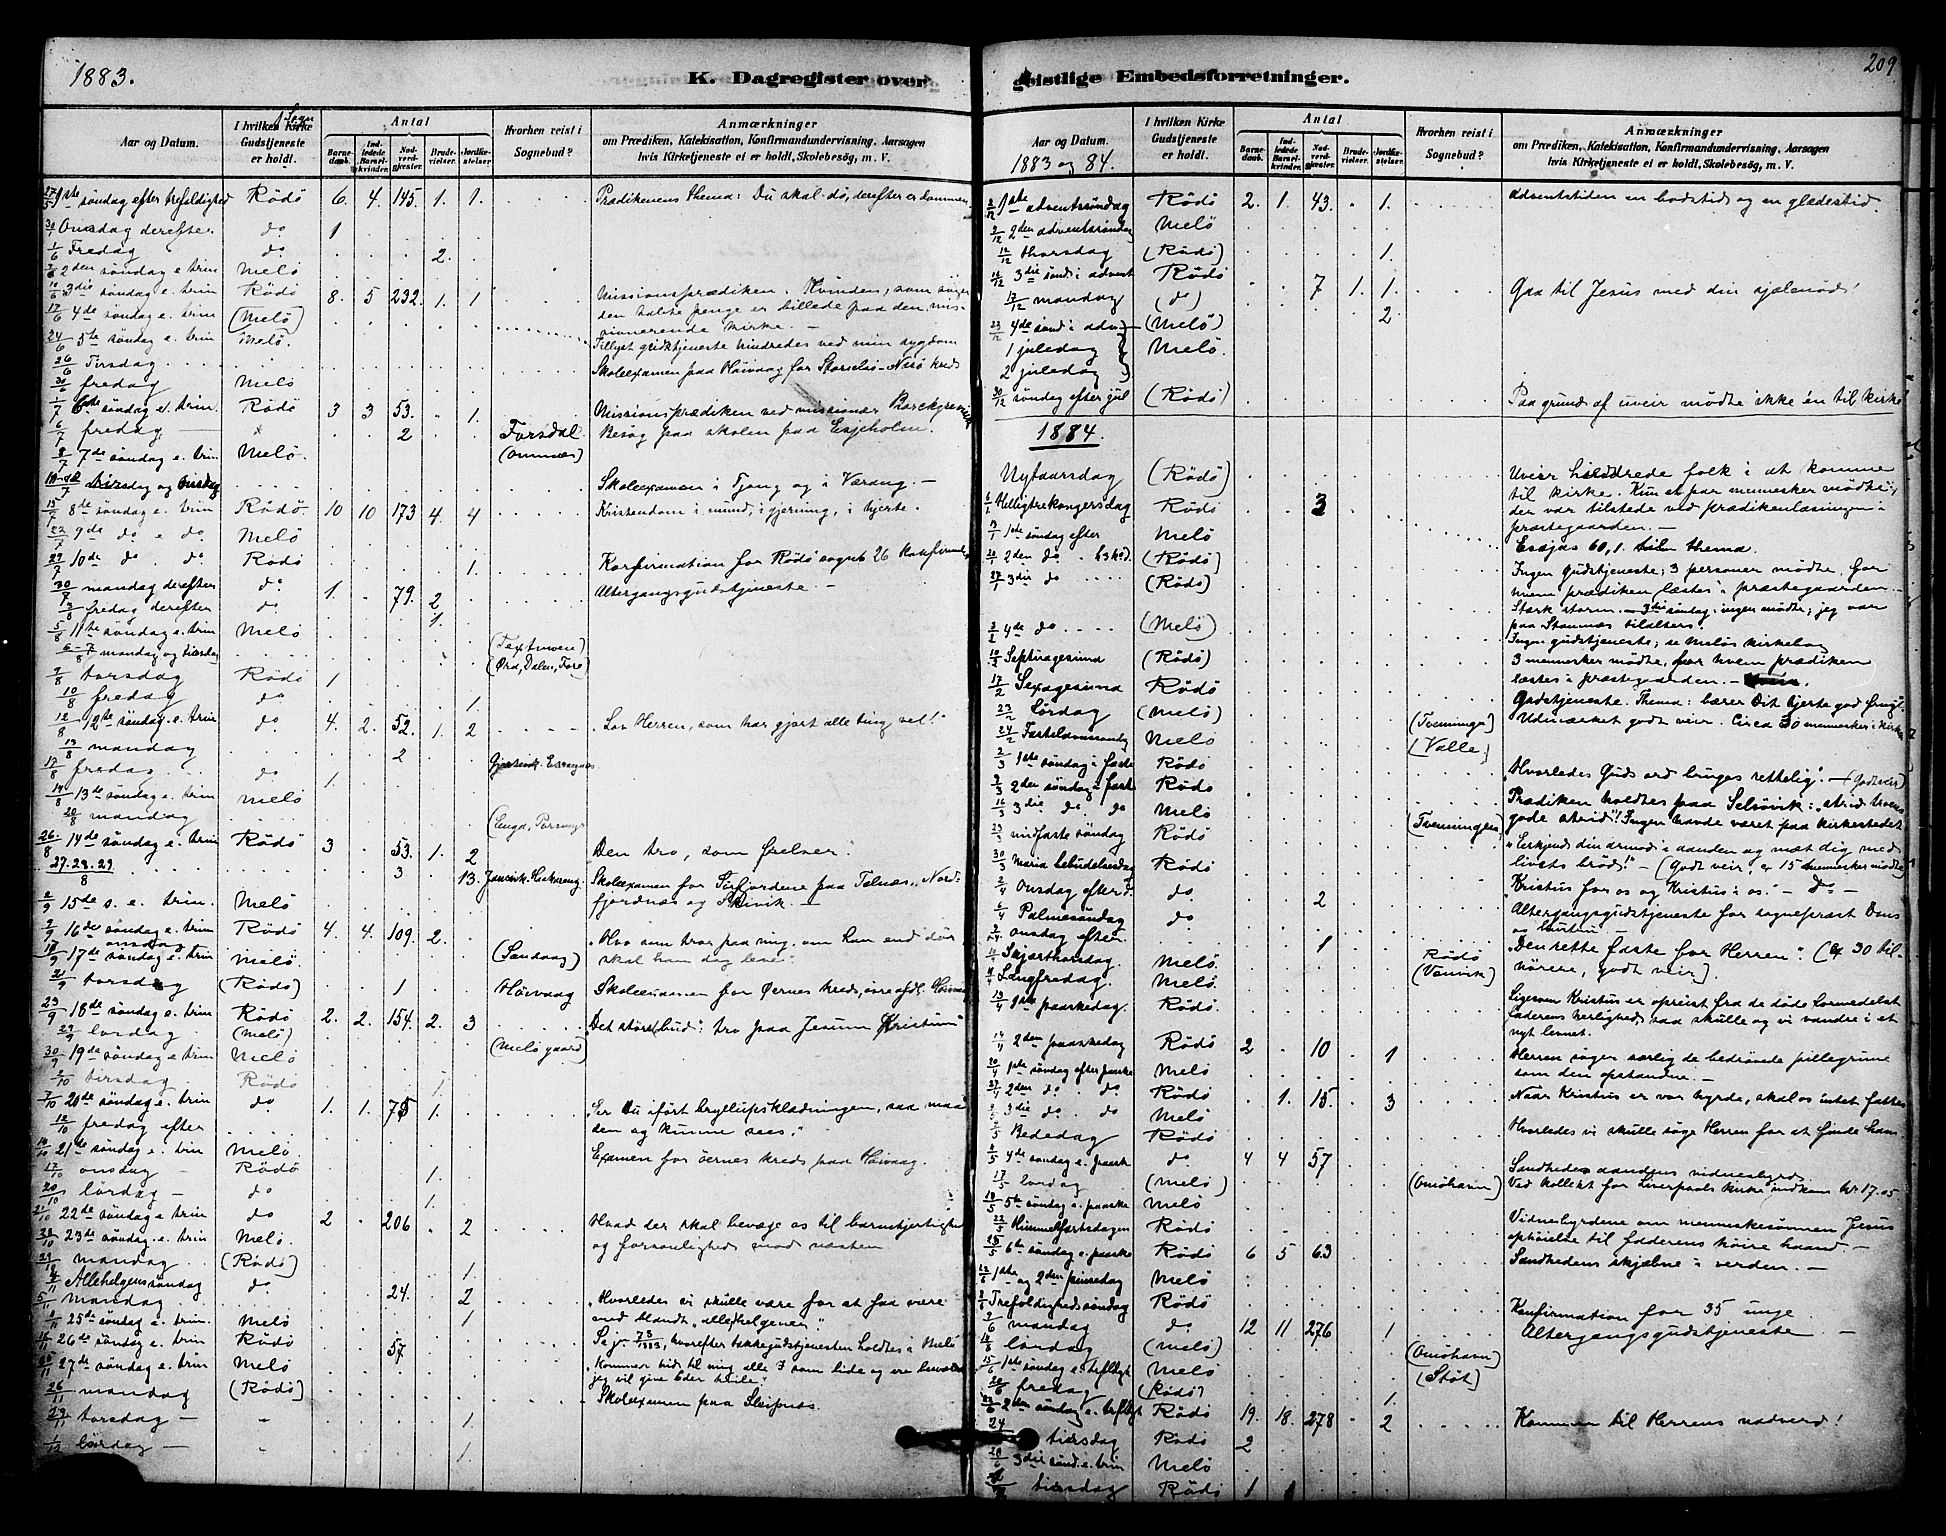 1883.
K. Dagregister over
Aar og Datum.
I hvilken Kirke Gudstjeneste er holdt.
Sogn
Antal
Barnedaab.
Indledede Barselkvinder.
Nadverdgjester.
Brudevielser.
Jordfæstelser.
Hvorhen reist i Sognebud?
Anmærkninger
om Prædiken, Katekisation, Konfirmandundervisning, Aarsagen
hvis Kirketjeneste ei er holdt, Skolebesøg, m. V.
27/5 1ste søndag efter trefoldighed Rödö 6. 4. 145. 1. 1. Prædikenens thema: Du skal dø, derefter er dommen
30/5 Onsdag derefter do 1
1/6 Fredag do 2.
2den søndag e. trin Melö
10/6 3die søndag e. trin Rödö 8. 5 232. 1. 1 Missionsprædiken. Kvinden, som søger
17/6 4de søndag e. trin (Melö) den tabte penge er billede paa den mis-
sionerende kirke. –
24/6 5te søndag e. trin Melö. Tillyst gudstjeneste hindredes ved min sygdom
26/6 Tirsdag Skoleexamen paa Höivaag for Storselös-Nesö kreds
fredag Melö
1/7 6te søndag e. trin. Rödö 3 3 53. 1. Missionsprædiken ved missionær
6/7 fredag 2 Forsdal Besøg paa skolen paa Esjeholm.
8/7 7de søndag e. trin Melö. (Omnæs)
tirsdag og onsdag Skoleexamen i Tjong og i Værang. –
15/7 8de søndag e. trin Rödö. 10 10 173 4. 4 Kristendom i mund, i gjerning, i hjerte.
22/7 9de do e do Melö
29/7 10de do. do. Rödö 1. Konfirmation for Rödö sogns 26 konfirmander
30/7 mandag derefter do 1. 79. 2. Altergangsgudstjeneste
3/8 fredag derefter do 1.
5/8 11te søndag e. trin Melö
6-7/8 mandag og tirsdag (Ørd, Dalen, Forø)
9/8 torsdag Rödö 1
10/8 fredag do 1
12/8 12te søndag e. trin do. 4 2. 52. 1. 2 "Lov Herren, som har gjort alle ting vel!"
13/8 mandag 2
17/8 fredag do 1.
13de søndag e. trin Melö
20/8 mandag
26/8 14de søndag e. trin Rödö 3 53. 1. 2 "Den tro, som frelser"
27.28.29/8 3 13. Skoleexamen for Tirfjordene paa Telnæs, Nord-
2/9 15de s. e. trin. Melö fjordnæs og Skivik. –
16de søndag e. trin Rödö 4. 4. 109. 2. "Hvo som tror paa mig, om han end dör
onsdag
17de søndag e. trin Melö. (Sandvaag) skal han dog leve"
21/9 torsdag (Rödö) 1 Höivaag Skoleexamen for Øernes kreds, øvre afdl. Höivaag
23/9 18de søndag e. trin Rödö 2. 2. 154. 2. 3 Det störst bud: tro paa Jesum Kristum
29/9 lördag (Melö)
30/9 19de søndag e. trin Melö (Melö gaard)
2/10 tirsdag Rödö 1.
7/10 20de søndag e. trin do 1. 1. 75 1. "Er Du iført bryllupsklædningen, saa maa
12/10 fredag efter den og kunne sees."
14/10 21de søndag e. trin Melö.
17/10 onsdag Rödö 1. Examen for øernes kreds paa Höivaag.
20/10 lördag – do 1.
21/10 22de søndag e. trin do 2 206 2 Hvad der skal bevæge os til barmhjertighed
28/10 23de søndag e. trin Melö. og forsonlighed mod næsten
29/10 mandag (Rödö) 1.
4/11 Allehelgenssöndag do 24. 2 "Hvorledes vi skulle være for at faa være
5/11 mandag 1 med blandt "allehelgenen"
25de søndag e. trin. Melö
26de søndag e. trin Rödö 57. takkegudstjenesten holdtes i Melö
27de søndag e. trin Melö "Kommer hid til mig alle I som lide og ere besværede
26/11 mandag (Rödö) jeg vil give Eder hvile".
29/11 torsdag – 1. Skoleexamen paa Sleipnæs.
1/12 lördag – 1.
geistlige Embedsforretninger.
209
Aar og Datum.
1883 og 84.
I hvilken Kirke Gudstjeneste er holdt.
Antal
Barnedaab.
Indledede Barselkvinder.
Nadverdgjester.
Brudevielser.
Jordfæstelser.
Hvorhen reist i Sognebud?
Anmærkninger
om Prædiken, Katekisation, Konfirmandundervisning, Aarsagen
hvis Kirketjeneste ei er holdt, Skolebesøg, m. V.
2/12 1ste adventssøndag Rödö 2. 1. 43. 1. Adventstiden en bodstid og en glædestid.
9/12 2den adventssöndag Melö
thorsdag (Rödö) 1.
16/12 3die sönd. i advent Rödö 7 1. 1. Gaa til Jesus med din sjælenød!
17/12 mandag (do) 2
23/12 4de sönd i adv. (Melö)
1 juledag } Melö.
2 juledag }
30/12 søndag efter jul (Rödö) Paa grund af uveir mødte ikke én til kirke
1884.
Nytaarsdag (Rödö) Uveir hindrede folk i at komme
til kirke. Kun et par mennesker mødte,
6/1 Helligtrekongersdag Rödö 3 der var tilstede ved prædikenlæsningen i
13/1 1ste søndag efter Melö præstegaarden. –
20/1 2den do. (Rödö) Esajas 60,1. thema.
27/1 3die do (Rödö) Ingen Gudstjeneste; 3 personer mødte, for
hvem prædiken læstes i præstegaarden.
Stærk storm. – 3die søndag: ingen mødte; jeg var
3/2 4de do (Melö) paa Stavnæs tilalters.
Ingen gudstjeneste; se Melös kirkebog
10/2 Septuagesima (Rödö) 3 mennesker mødte, for hvem prædiken
17/2 Sexagesima Rödö læstes i præstegaarden. –
23/2 Lördag (Melö) Gudstjeneste. Thema: bærer Dit hjerte god frugt?
24/2 Fastelavnssøndag Melö (Tvenninge) Udmærket godt veir. Circa 30 mennesker i kirke
2/3 1ste søndag i faste Rödö (Valle)
9/3 2den søndag i faste Rödö "Hvorledes Guds ord bruges rettelig". – (Godt veir)
16/3 3die do. do Melö Prædiken holdtes paa Selsövik: "strid troens
23/3 midfaste søndag Rödö (Tvenningen) gode strid"! Ingen havde været paa kirkestedet
30/3 Maria bebudelsesdag Rödö "Erkjend din armod i aanden og mæt dig med
livets brød!" – (Godt veir, c. 15 mennesker mødte)
2/4 Onsdag efter d. do. 2 Kristus for os og Kristus i os. – do –
6/4 Palmesøndag do "Altergangsgudstjeneste for sogneprest Bøns
og hustru. –
onsdag efter 1 "Den rette faste for Herren". (c. 30 til-
Skjærthorsdag. Melö. Rödö hørere, godt veir).
Langfredag. Melö. (Værvik)
13/4 1ste paaskedag. Rödö. Ligesom Kristus er opreist fra de døde formedelst
faderens herlighed, saa skulle og vi vandre i et
nyt levnet.
14/4 2den paaskedag Rödö 2 10 1 Herren søger særlig de bedrøvede pillegrime
20/4 1ste søndag efter paaske Melö som den opstandne. –
27/4 2den do. do Rödö 1. 15. 3 Naar Kristus er vor hyrde, skal os intet fattes
3die do. do Melö
Bededag Rödö Hvorledes vi skulle søge Herren for at finde ham.
4de søndag e. paask do 4 4 57 Sandheds aandens vidnesbyrd
17/5 lördag (Melö) (Omöhavn) Ved kollekt for Liverpools kirke indkom kr 17.05
18/5 5te søndag e. paaske Melö
22/5 Himmelfartsdagen Rödö Vidnesbyrdene om menneskesønnen Jesus
25/5 6te søndag e. paaske Rödö 6 5 63 ophøielse til faderens höire haand –
1ste og 2den pinsedag Melö Sandhedens skjæbne i verden. –
8/6 Trefoldighedssøndag Rödö Konfirmation for 35 unge
9/6 mandag do. 12 11 276 1 Altergangsgudstjeneste –
lördag (Melö) (Omöhavn)
15/6 1ste søndag e. trefldgh Melö (Støt)
20/6 fredag (Rödö) 1.
22/6 2den søndag e. trefldgh Rödö 19. 18. 278 2 Kommer til Herrens nadverd!
24 tirsdag Rödö 2
29/6 3die sönd. e. trin Melö
tirsdag Rödö 1 1